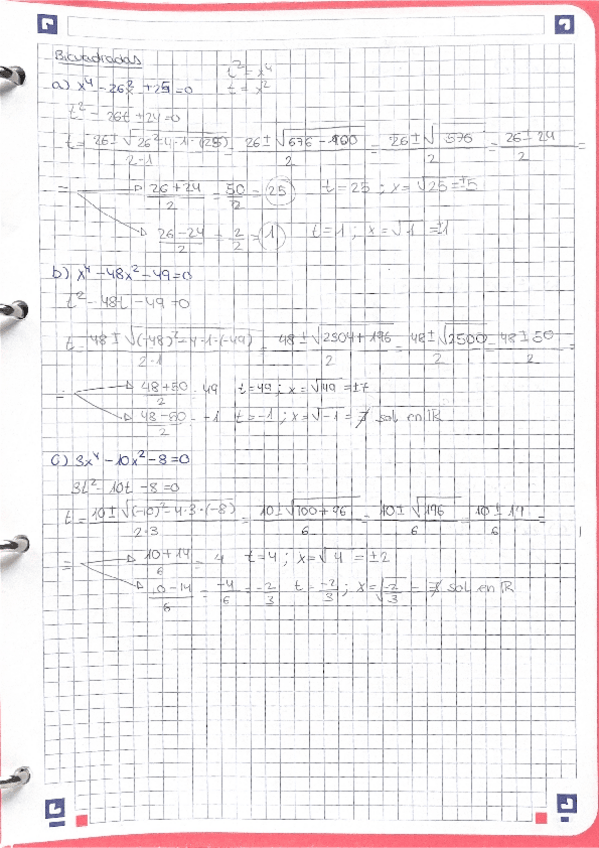 Bicuadradas
t² = x⁴
t = x²
a) x⁴ - 26x² + 25 = 0
t² - 26t + 24 = 0
t = (26 ± √(26² - 4·1·(25)))/(2·1) = (26 ± √(676 - 100))/2 = (26 ± √576)/2 = (26 ± 24)/2 =
= → (26 + 24)/2 = 50/2 = 25 t = 25 ; x = √25 = ±5
→ (26 - 24)/2 = 2/2 = 1 t = 1 ; x = √1 = ±1
b) x⁴ - 48x² - 49 = 0
t² - 48t - 49 = 0
t = (48 ± √((-48)² - 4·1·(-49)))/(2·1) = (48 ± √(2304 + 196))/2 = (48 ± √2500)/2 = (48 ± 50)/2 =
= → (48 + 50)/2 = 49 t = 49 ; x = √49 = ±7
→ (48 - 50)/2 = -1 t = -1 ; x = √-1 = ∄ sol en ℝ
c) 3x⁴ - 10x² - 8 = 0
3t² - 10t - 8 = 0
t = (10 ± √((-10)² - 4·3·(-8)))/(2·3) = (10 ± √(100 + 96))/6 = (10 ± √196)/6 = (10 ± 14)/6 =
= → (10 + 14)/6 = 4 t = 4 ; x = √4 = ±2
→ (10 - 14)/6 = -4/6 = -2/3 t = -2/3 ; x = √(-2/3) = ∄ sol en ℝ